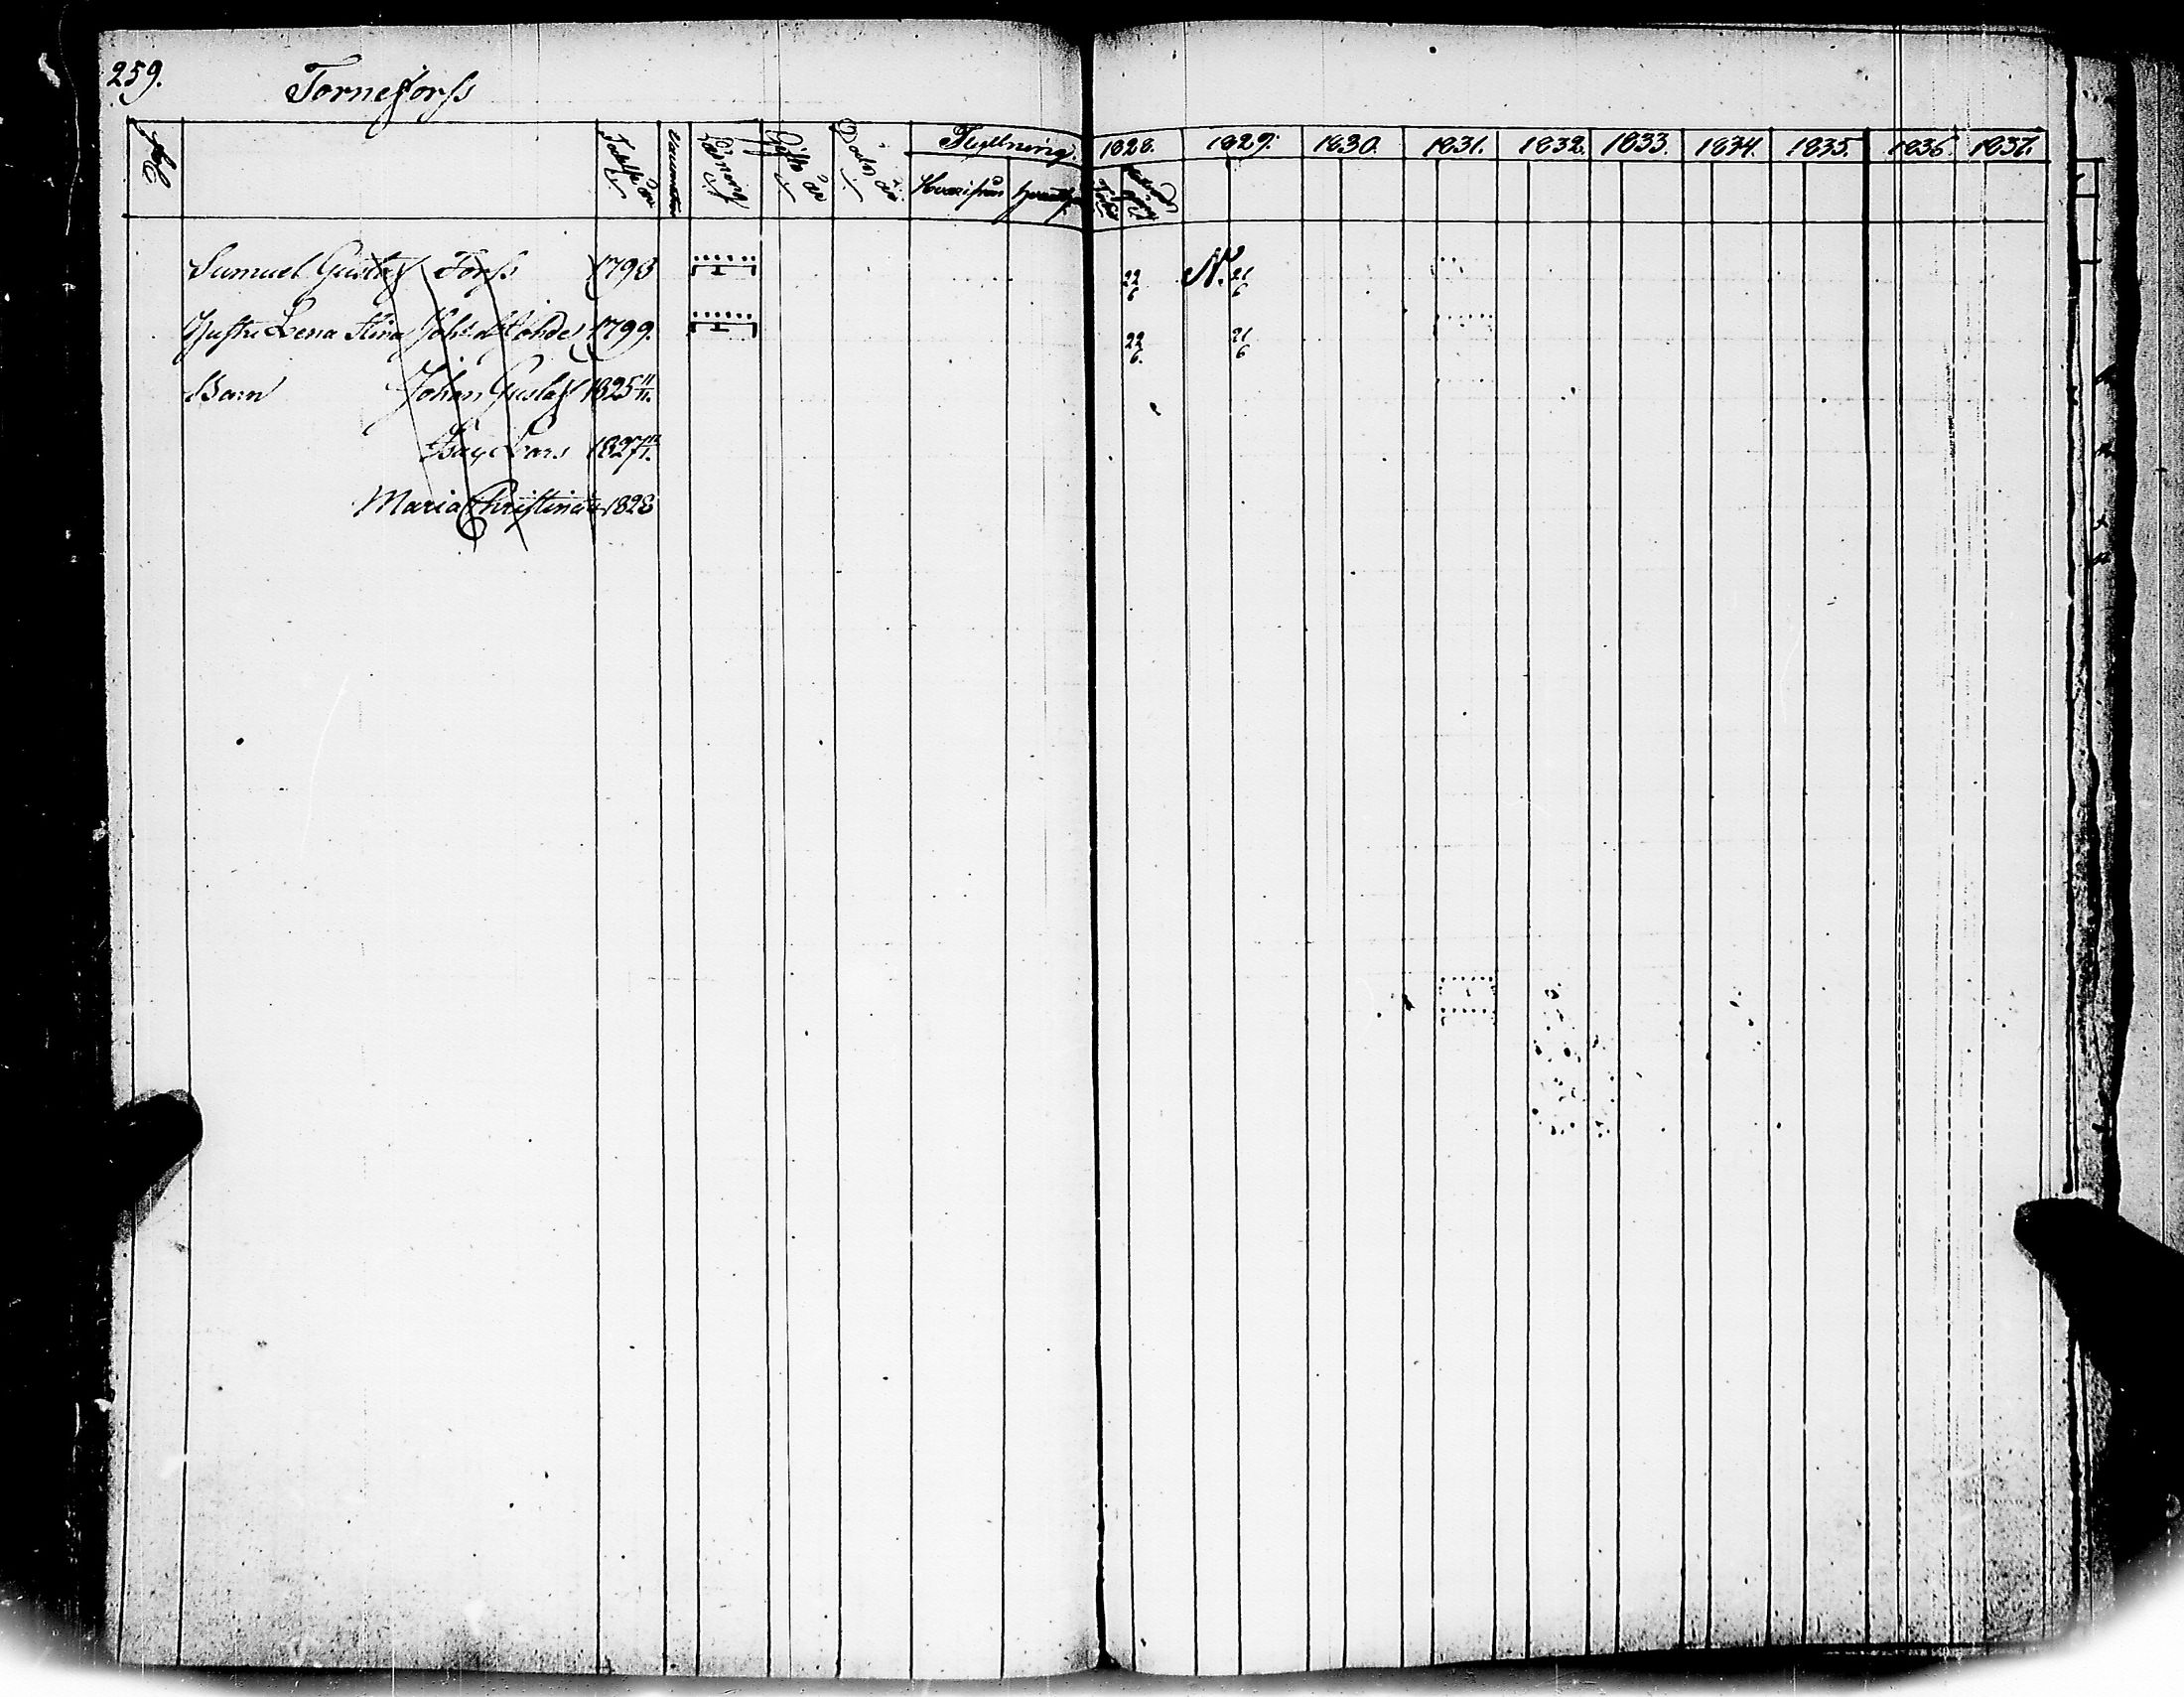 259.
Torneforss
No Födelse år Vaccination Läsning Gifte år Döds år Flyttning. 1828. 1829. 1830. 1831. 1832. 1833. 1834. 1835. 1836. 1837.
Hvarifrån
Samuel Gustaf Forss 1798 22/6 N. 21/6
Hustru Lena Stina 1799. 22/6. 21/6
Barn Johan Gustaf 1825 11/11.
Lars 1827
Maria Christina 1828